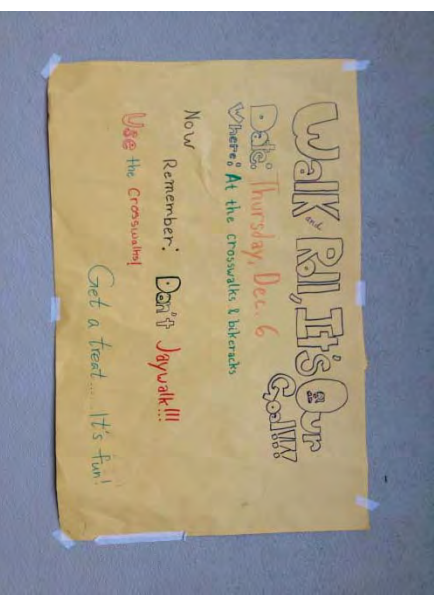 Walk and Roll, It's Our
Goal!!!
Date: Thursday, Dec. 6
Where: At the crosswalks & bikeracks
Now
Remember: Don't Jaywalk!!!
Use the crosswalks!
Get a treat... It's fun!